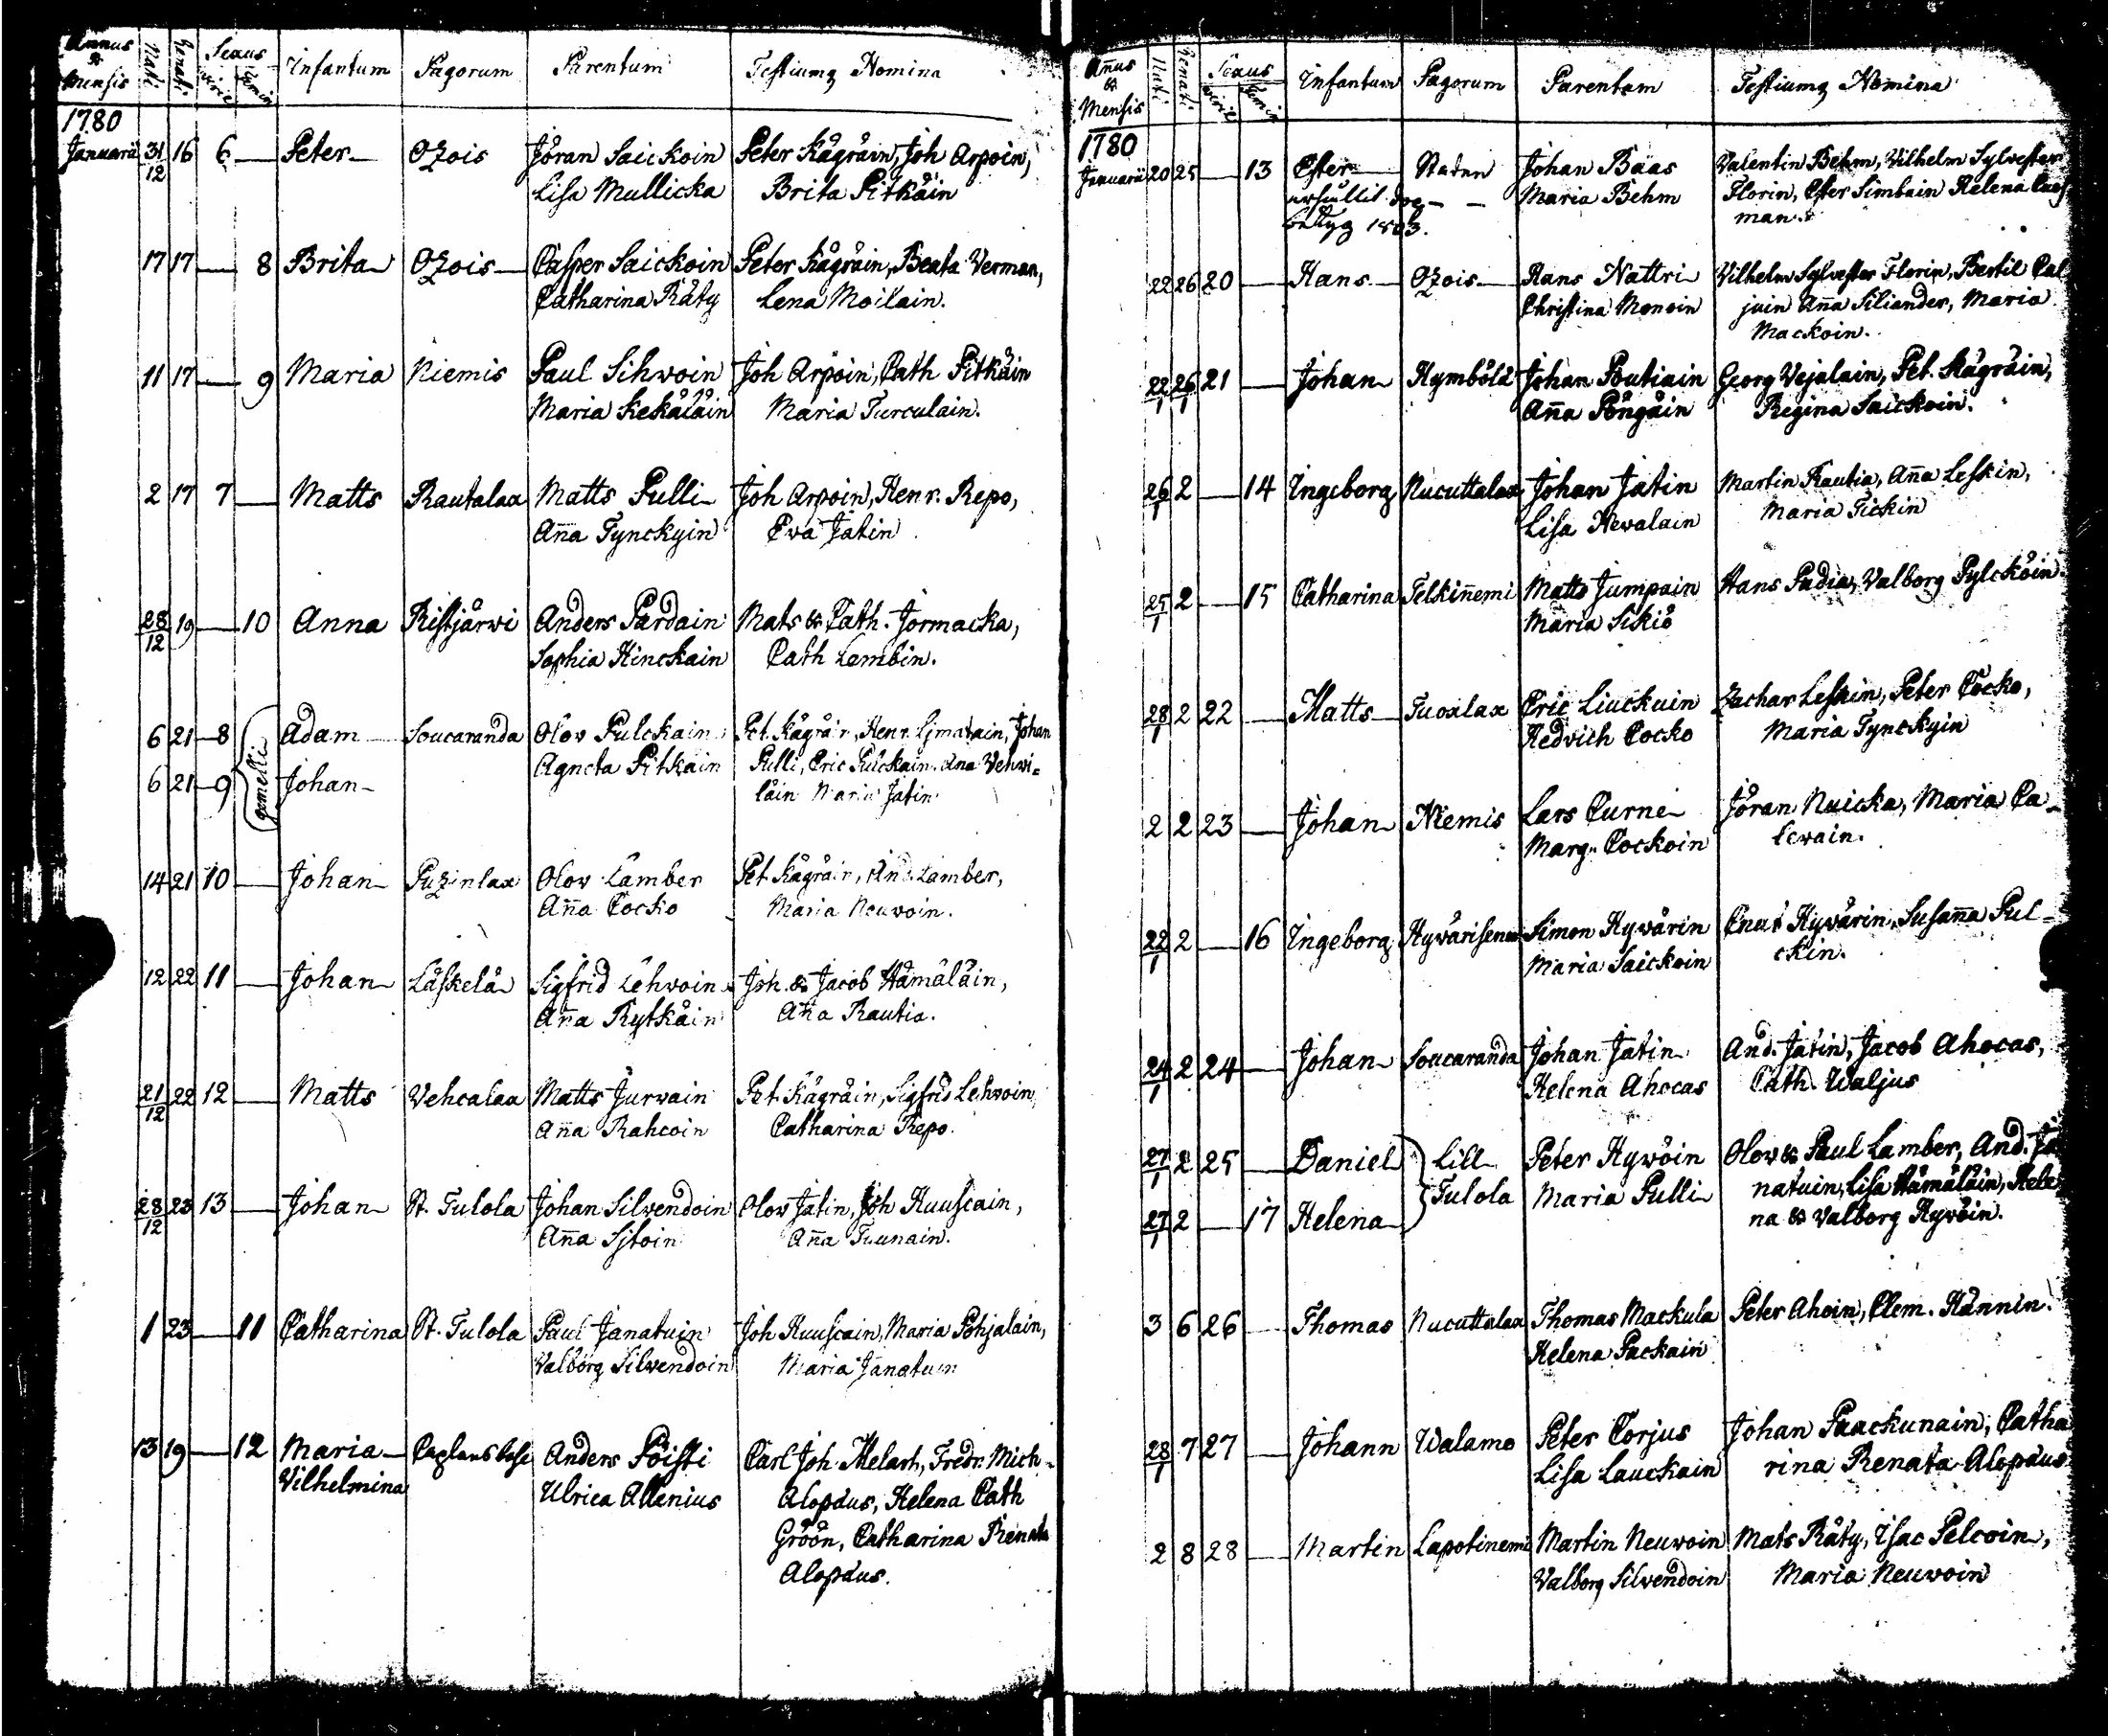 Annus & Mensis Nati. Renati. Sexus Viril. Femin. Infantum Pagorum Parentum Testiumq Nomina
1780
Januarii 31/12 16 6 — Peter Ozois Jöran Saickoin Peter Kägräin, Joh Arpoin,
Lisa Mullicka Brita Pitkäin
17 17 — 8 Brita Ozois Casper Saickoin Peter Kägräin, Beata Verman,
Catharina Räty Lena Moilain.
11 17 — 9 Maria Niemis Paul Sihvoin Joh Arpoin, Cath Pitkäin
Maria Kekäläin Maria Turculain.
2 17 7 — Matts Rautalax Matts Pulli Joh Arpoin, Henr. Repo,
Aña Tynckyin Eva Jatin
28/12 19 — 10 Anna Ristjärwi Anders Pardain Mats & Cath. Jormacka,
Sophia Hinckain Cath Lembin.
6 21 8 gemelli Adam Soucaranda Olov Pulckain Pet. Kägräin, Henr. Ijmatain, Johan
6 21 9 Johan Agneta Pitkäin Pulli, Eric Pulckain. Ana Vehvi=
läin Maria Jatin
14 21 10 — Johan Puzinlax Olov Lamber Pet. Kägräin, And. Lamber,
Aña Cocko Maria Neuvoin.
12 22 11 — Johan Läskelä Sigfrid Lehvoin Joh. & Jacob Hämäläin,
Aña Rytkäin Aña Rautia.
21/12 22 12 — Matts Vehcalax Matts Jurvain Pet. Kägräin, Sigfrid Lehvoin,
Aña Rahcoin Catharina Repo.
28/12 23 13 — Johan St. Tulola Johan Silvendoin Olov Jatin, Joh Kuuscain,
Aña Sjtoin Aña Tuunain.
1 23 — 11 Catharina St. Tulola Paul Janatuin Joh Kuuscain, Maria Pohjalain,
Valborg Silvendoin Maria Janatuin
13 19 — 12 Maria Anders Pöisti Carl Joh. Melart, Fredr. Mich
Vilhelmina Ulrica Allenius Alopæus, Helena Cath
Gröön, Catharina Renata
Alopæus.
Añus & Mensis Nati Renati Sexus Viril Femin Infantum Pagorum Parentum Testiumq Nomina
1780
Januarii 20 25 — 13 Ester Staden Johan Baas Valentin Behm, Vilhelm Sylvester
Maria Behm Florin, Ester Simbain Helena
betyg 1803. man.
22 26 20 — Hans Ozois Hans Nattri Vilhelm Sylvester Florin, Bertil Cal
Christina Monoin juin Aña Siliander, Maria
Mackoin.
22/1 26/1 21 — Johan Hymbölä Johan Poutiain Georg Vejalain, Pet. Kägräin,
Aña Pöngäin Regina Saickoin.
26/1 2 — 14 Ingeborg Nucuttalax Johan Jatin Martin Rautia, Aña Leskin,
Lisa Hevalain Maria Tickin
25/1 2 — 15 Catharina Telkiñemi Matts Jumpain Hans Padia, Valborg Pylcköin.
Maria Sikiö
28/1 2 22 — Matts Tuoxlax Eric Liuckuin Zachar Leskin, Peter Cocko,
Hedvich Cocko Maria Tynckyin
2 2 23 — Johan Niemis Lars Curne Jöran Nuicka, Maria Ca-
Marg. Cockoin levain.
22/1 2 — 16 Ingeborg Simon Hyvärin Cnut Hyvärin, Susaña Pul-
Maria Saickoin ckin.
24/1 2 24 — Johan Soucaranda Johan Jatin And. Jatin, Jacob Ahocas,
Helena Ahocas Cath. Waljus
27/1 2 25 — Daniel Lill Peter Hyvöin Olov & Paul Lamber, And. Ja
27/1 2 — 17 Helena Tulola Maria Pulli natuin, Lisa Hämäläin, Hele
na & Valborg Hyvöin.
3 6 26 — Thomas Nucuttalax Thomas Mackula Peter Ahoin, Clem. Hännin.
Helena Packain
28/1 7 27 — Johann Walamo Peter Corjus Johan Paackunain, Catha
Lisa Lauckain rina Renata Alopæus
2 8 28 — Martin Lapotinemi Martin Neuvoin Mats Räty, Isac Pelcoin,
Valborg Silvendoin Maria Neuvoin